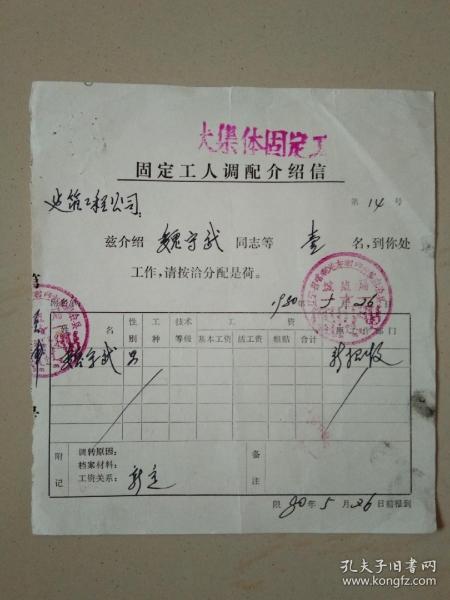 大集体固定工
固定工人调配介绍信
第 14 号
建筑工程公司:
兹介绍 魏守武 同志等 壹 名,到你处
工作,请按洽分配是荷。
1980年5月26
名 性别 工种 技术等级 工资 基本工资 活工资 粮贴 合计 原工作部门
魏守武 男 新招收
附记 调转原因: 档案材料: 工资关系: 新定 备注
限80年5月26日前报到
孔夫子旧书网
www.kongfz.com